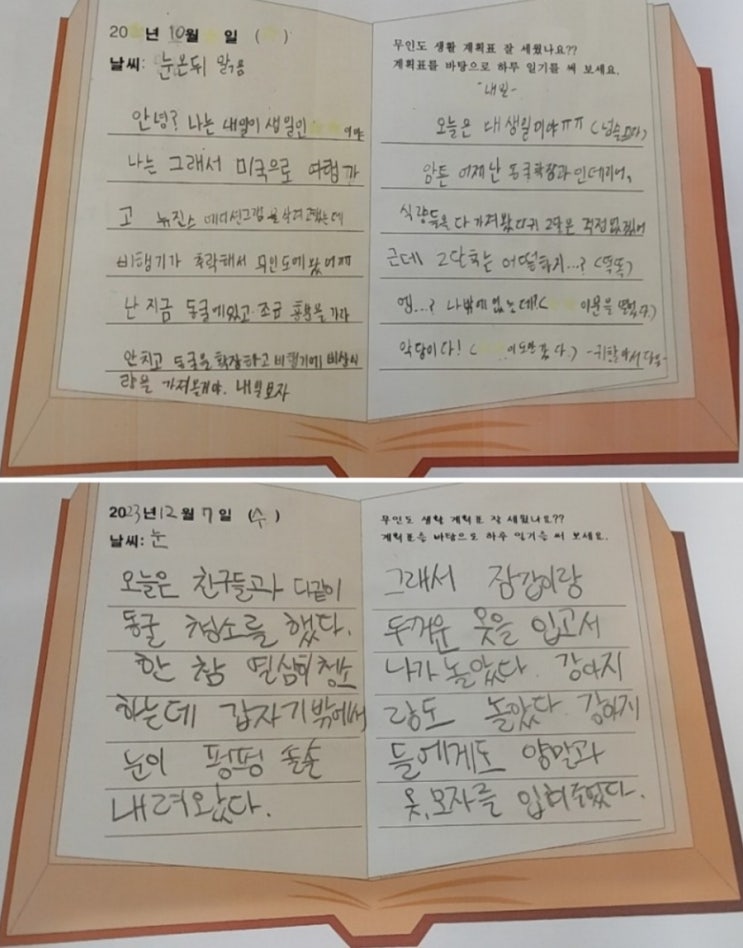 20 년 10월 일 ( )
날씨: 눈온뒤 맑음
안녕? 나는 내일이 생일인 이야
나는 그래서 미국으로 여행가
고 뉴진스 를 사려고했는데
비행기가 추락해서 무인도에 왔어ㅠㅠ
난 지금 동굴에있고 조금
안치고 동굴을 확장하고 비행기에 비상식
량을 가져올거야. 내일보자
무인도 생활 계획표 잘 세웠나요??
계획표를 바탕으로 하루 일기를 써 보세요.
-내일-
오늘은 내 생일이야ㅠㅠ
암튼 어제 난 동굴확장과 인테리어,
식량등을 다 가져왔다귀 2달은 걱정없겠어
근데 2달후는 어떨하지...? (똑똑)
엥...? 나밖에 없는데?( 이 문을 열었다.)
악당이다! ( 이 도망갔다.)
2023년 12월 7일 (수)
날씨: 눈
오늘은 친구들과 다같이
동굴 청소를 했다.
한 참 열심히 청소
하는데 갑자기 밖에서
눈이 펑펑 솔솔
내려왔다.
무인도 생활 계획표 잘 세웠나요??
계획표를 바탕으로 하루 일기를 써 보세요.
그래서 장갑이랑
두꺼운 옷을 입고서
나가 놀았다. 강아지
랑도 놀았다. 강아지
들에게도 양말과
옷,모자를 입혀주었다.